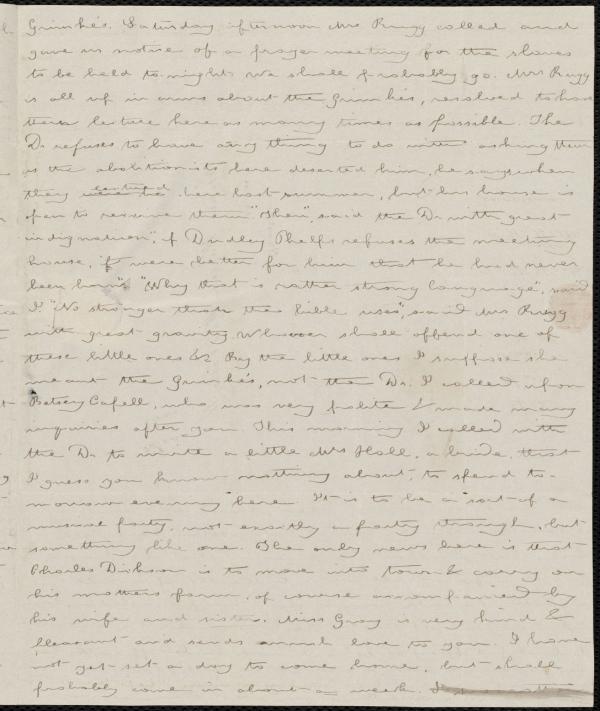 Grimkés. Saturday afternoon Mrs Rugg called and
gave us notice of a prayer meeting for the slaves
to be held to-night. We shall probably go. Mrs Rugg
is all up in arms about the Grimkés, resolved to have
them lecture here as many times as possible. The
Dr refuses to have any thing to do with asking them
as the abolitionists here deserted him, he says when
they lectured here last summer, but his house is
open to receive them. "Then", said the Dr with great
indignation, "if Dudley Phelps refuses the meeting
house, it were better for him that he had never
been born". "Why that is rather strong language", said
I. "No stronger than the bible uses", said Mrs Rugg
with great gravity. Whoever shall offend one of
these little ones &c By the little ones I suppose she
meant the Grimkés, not the Dr. I called upon
Betsey Cafell, who was very polite & made many
inquiries after you. This morning I called with
the Dr to invite a little Mrs Hall, a bride, that
I guess you know nothing about, to spend to-
morrow evening here. It is to be a sort of a
musical party, not exactly a party though, but
something like one. The only news here is that
Charles Dickson is to move into town & carry on
his mothers farm, of course accompanied by
his wife and sister. Miss Gray is very kind &
pleasant and sends much love to you. I have
not yet set a day to come home, but shall
probably come in about a week.